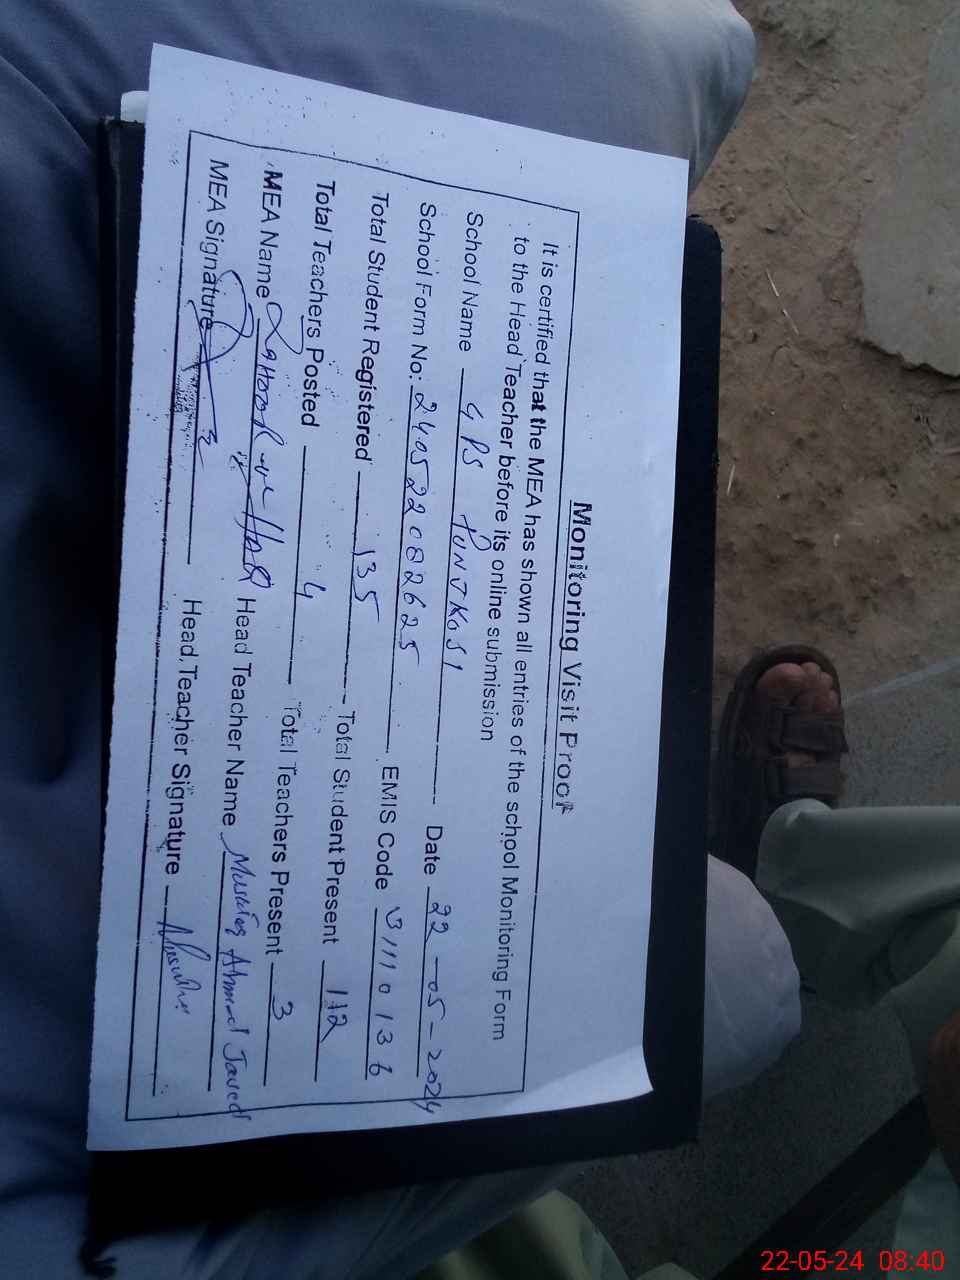 Monitoring Visit Proof
It is certified that the MEA has shown all entries of the school Monitoring Form
to the Head Teacher before its online submission
School Name GPS PUNJKOSI Date 22-05-2024
School Form No: 240522082625 EMIS Code 31110136
Total Student Registered 135 Total Student Present 112
Total Teachers Posted 4 Total Teachers Present 3
MEA Name Head Teacher Name Ahmed Javed
MEA Signature Head Teacher Signature
22-05-24 08:40